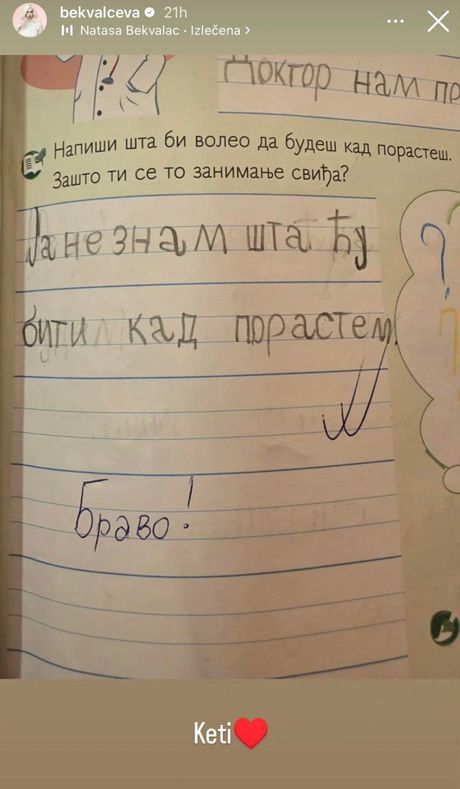 bekvalceva 21h
Natasa Bekvalac · Izlečena >
Доктор нам пр
Напиши шта би волео да будеш кад порастеш.
Зашто ти се то занимање свиђа?
Ја не знам шта ћу
бити кад порастем.
Браво!
Keti❤️